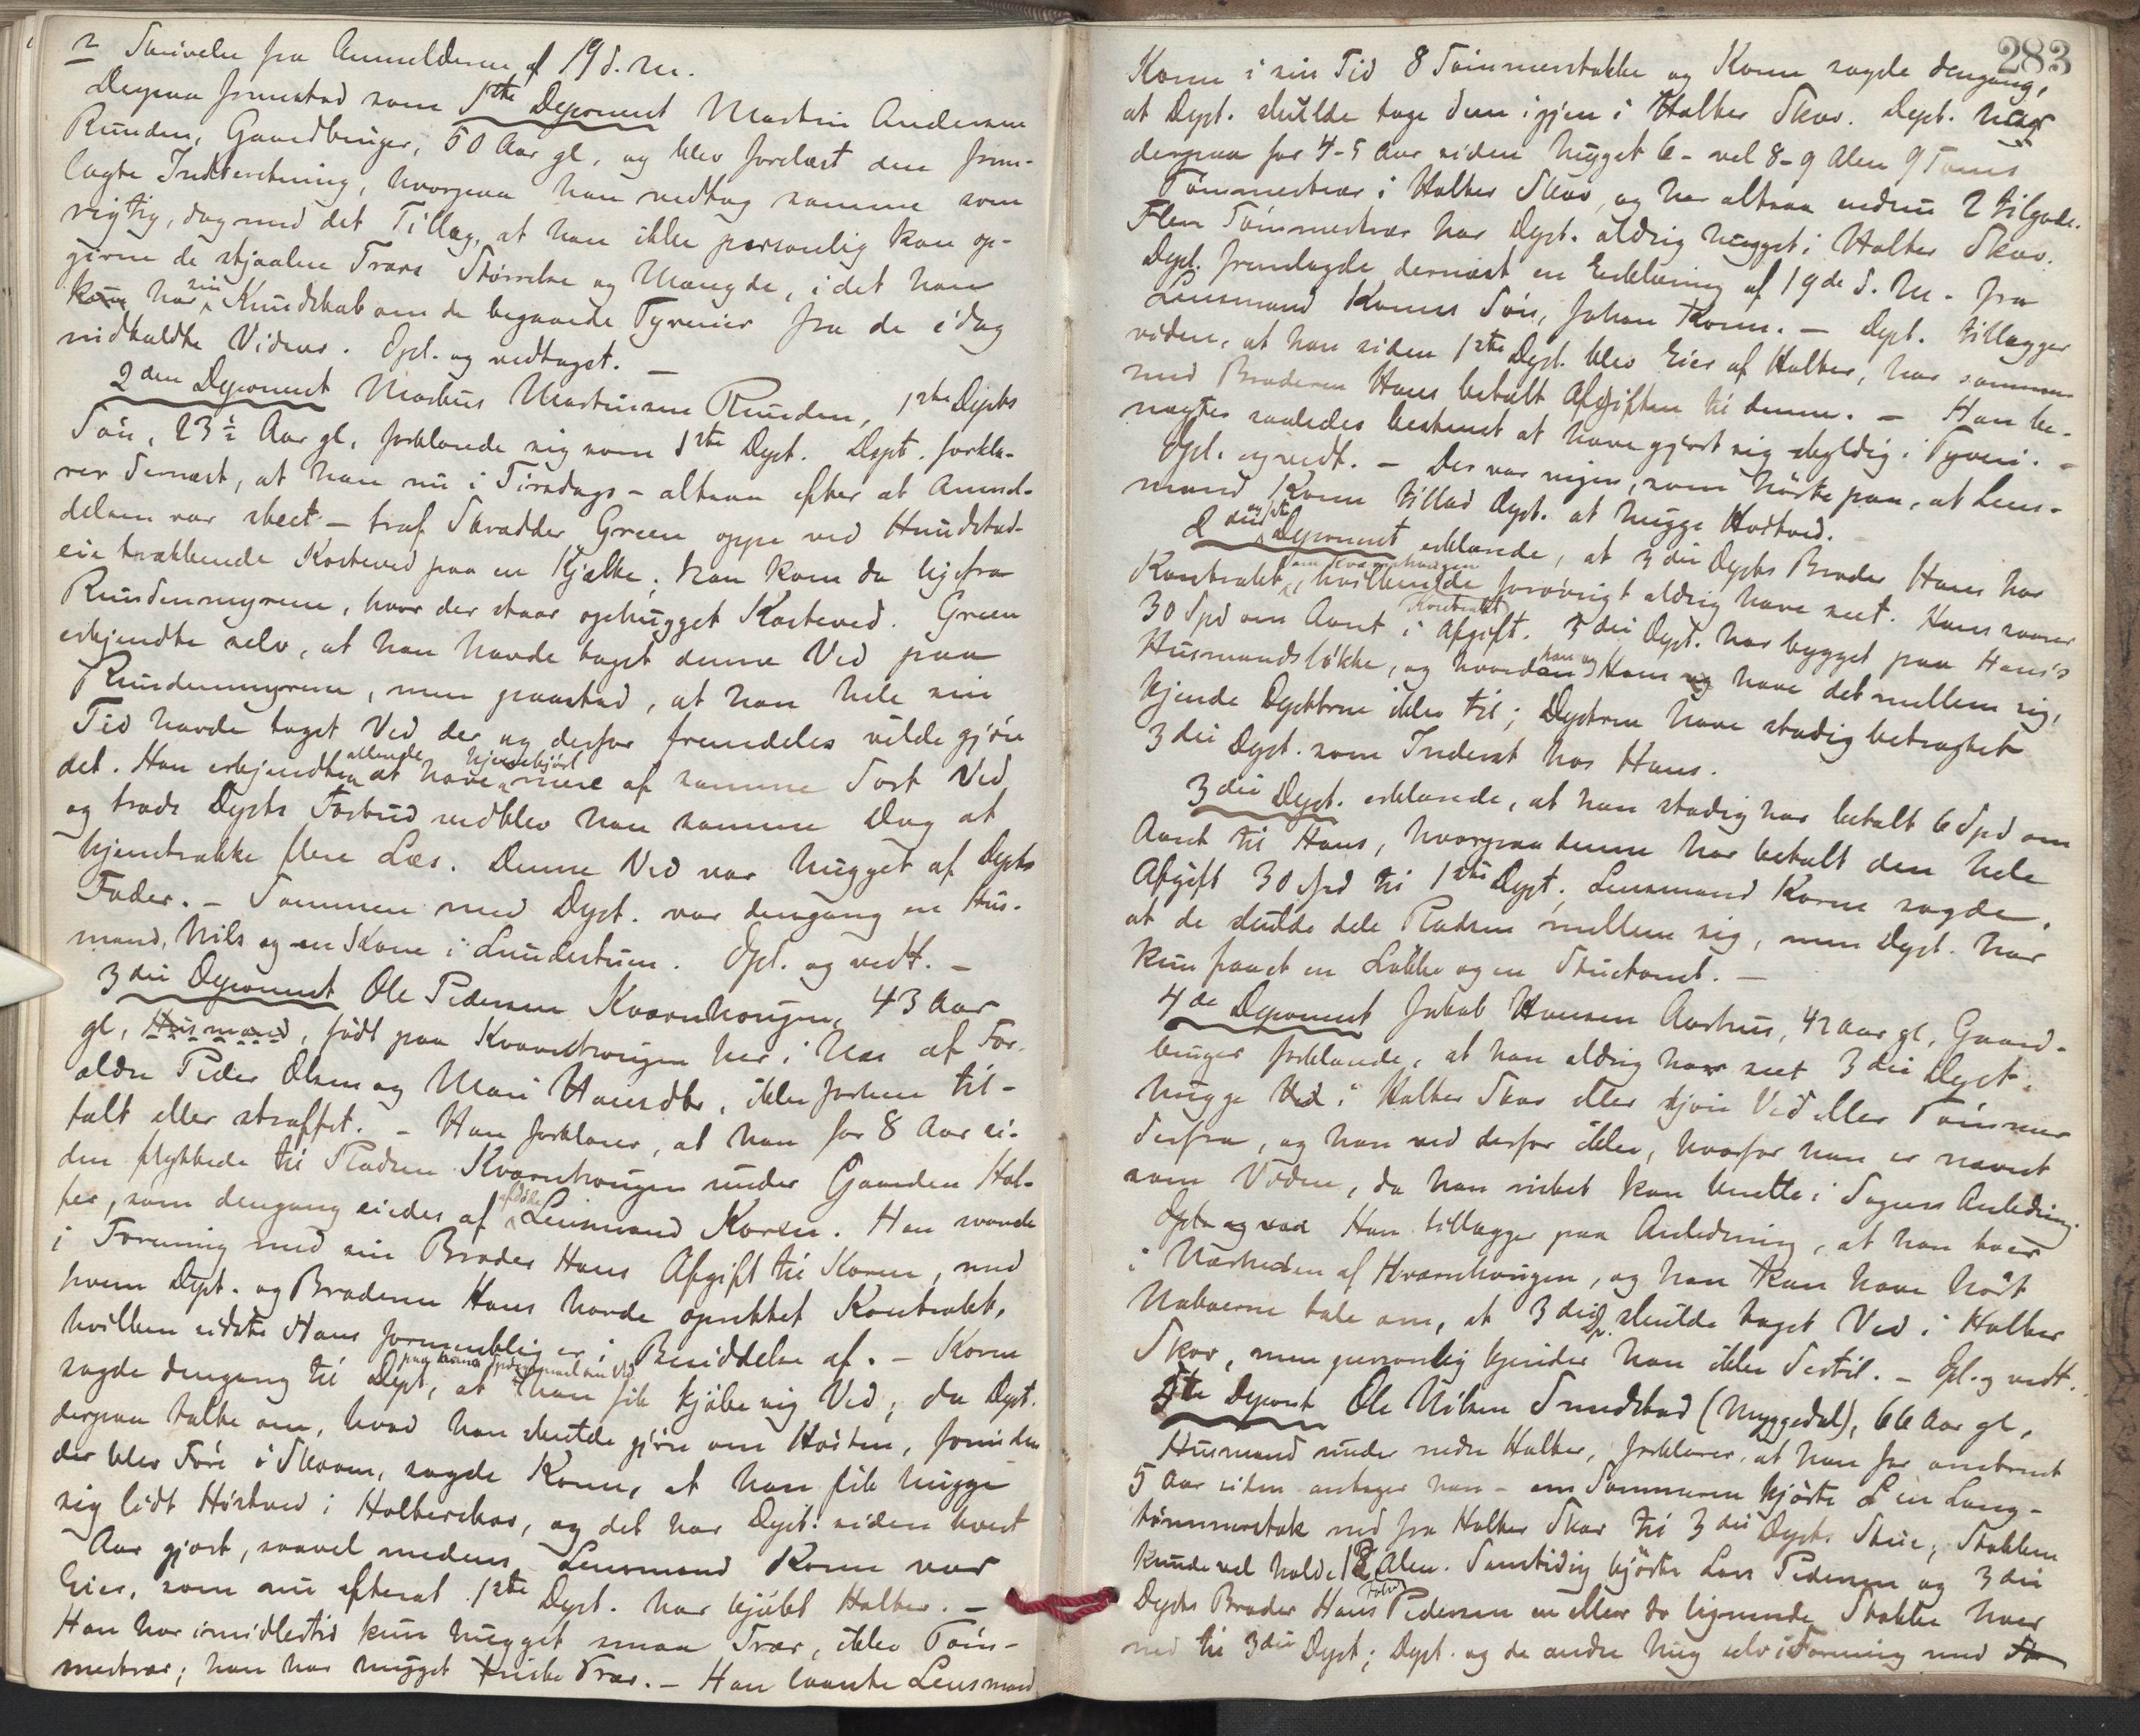 2 Skrivelse fra Anmelderen af 19 d. M.
Derpaa fremstod som 1ste Deponent Martin Andersen
Runden, Gaardbruger, 50 Aar gl, og blev forelæst den frem-
lagte Indberetning, hvorpaa han vedtog samme som
rigtig, dog med det Tillæg, at han ikke personlig kan op-
givne de stjaalne Træers Størrelse og Mængde, i det han
kun har sin Kundskab om de begaaede Tyverier fra de idag
indkaldte Vidner. Opl. og vedtaget. —
2den Deponent Markus Martinsen Runden, 1ste Dpts
Søn, 23½ Aar gl, forklarede sig som 1ste Dpt. Dpt. forkla-
rer dernæst, at han nu i Tirsdags – altsaa efter at Anmel-
delsen var skeet – traf Skrædder Green oppe ved Hundstad-
eie trækkende Kasteved paa en Kjælke; han kom da ligefra
Rundenmyrene, hvor der staar ophugget Kasteved. Green
erkjendte selv, at han havde taget denne Ved paa
Rundenmyrene, men paastod, at han hele sin
Tid havde taget Ved der og derfor fremdeles vilde gjøre
det. Han erkjendte allerede at have hjemkjørt mere af samme Sort Ved
og trods Dpts Forbud vedblev han samme Dag at
hjemtrække flere Læs. Denne Ved var hugget af Dpts
Fader. – Sammen med Dpt. var dengang en Hus-
mand, Nils og en Kone i Lundestuen. Opl. og vedt. –
3die Deponent Ole Pedersen Kværnhougen, 43 Aar
gl, Husmand, født paa Kværnhougen her i Næs af For-
ældre Peder Olsen og Mari Hansdtr, ikke forhen til-
talt eller straffet. – Han forklarer, at han for 8 Aar si-
den flyttede til Pladsen Kværnhougen under Gaarden Hal-
ker, som dengang eiedes af afdøde Lensmand Koren. Han svarede
i Forening med sin Broder Hans Afgift til Koren, med
hvem Dpt. og Broderen Hans havde oprettet Kontrakt,
hvilken sidste Hans formentlig er i Besiddelse af. – Koren
sagde dengang til Dpt, paa hans Spørgsmaal om Ved at han fik kjøbe sig Ved; da Dpt.
derpaa talte om, hvad han skulde gjøre om Høsten, forinden
der blev Føre i Skoven, sagde Koren, at han fik hugge
sig lidt Høstved i Halkerskov, og det har Dpt. siden hvert
Aar gjort, saavel medens Lensmand Koren var
Eier, som nu efterat 1ste Dpt. har kjøbt Halker. –
Han har imidlertid kun hugget smaa Træer, ikke Tøm-
mertrær; han har hugget friske Trær. – Han laante Lensmand
283
Koren i sin Tid 8 Tømmerstokke og Koren sagde dengang,
at Dpt. skulde tage dem igjen i Halker Skov. Dpt. har
derpaa for 4-5 Aar siden hugget 6 – vel 8-9 Alen 9 Toms
Tømmertrær i Halker Skov, og har altsaa endnu 2 tilgode.
Flere Tømmertrær har Dpt. aldrig hugget i Halker Skov.
Dpt. fremlagde dernæst en Erklæring af 19de d. M. fra
Lensmand Korens Søn, Johan Koren. – Dpt. tillægger
viden, at han siden 1ste Dpt. blev Eier af Halker, har sammen
med Broderen Hans betalt Afgiften til denne. – Han be-
nægter saaledes bestemt at have gjort sig skyldig i Tyveri. –
Opl. og vedt. – Der var ingen, som hørte paa, at Lens-
mand Koren tillod Dpt. at hugge Høstved.
2den Deponent erklærede, at 3die Dpts Broder Hans har
Kontrakt om Kværnhougen, hvilken de forøvrigt aldrig have seet. Hans svarer
30 Spd om Aaret i Afgift. Kontrakt 3die Dpt. har bygget paa Hans's
Husmandsløkke, og hvordan han og Hans have det mellem sig,
kjende Dpterne ikke til; Dpterne have stadig betragtet
3die Dpt. som Inderst hos Hans.
3die Dpt. erklærede, at han stadig har betalt 6 Spd om
Aaret til Hans, hvorpaa denne har betalt den hele
Afgift 30 Spd til 1ste Dpt. Lensmand Koren sagde,
at de skulde dele Pladsen mellem sig, men Dpt. har
kun faaet en Løkke og en Stuetomt. –
4de Deponent Jakob Hansen Aashus, 42 Aar gl, Gaard-
bruger forklarede, at han aldrig har seet 3die Dpt.
hugge Ved i Halker Skov eller kjøre Ved eller Tømmer
derfra, og han ved derfor ikke, hvorfor han er nævnt
som Vidne, da han intet kan berette i Sagens Anledning.
Opl. og ved Han tillægger paa Anledning, at han boer
i Nærheden af Kværnhougen, og han kan have hørt
Naboerne tale om, at 3die Dp. skulde taget Ved i Halker
Skov, men personlig kjender han ikke dertil. – Opl. og vedt.
5te Deponent Ole Nilsen Sundstad (Myggedal), 66 Aar gl,
Husmand under nedre Halker, forklarer, at han for omtrent
5 Aar siden antager han – om Sommeren kjørte en Lang-
tømmerstok ned fra Halker Skov til 3die Dpts Stue, Stokken
kunde vel holde 12 Alen. Samtidig kjørte Lars Pedersen og 3die
Dpts Broder Hans Pedersen en eller to lignende Stokke hver
ned til 3die Dpt; Dpt. og de andre hug selv i Forening med